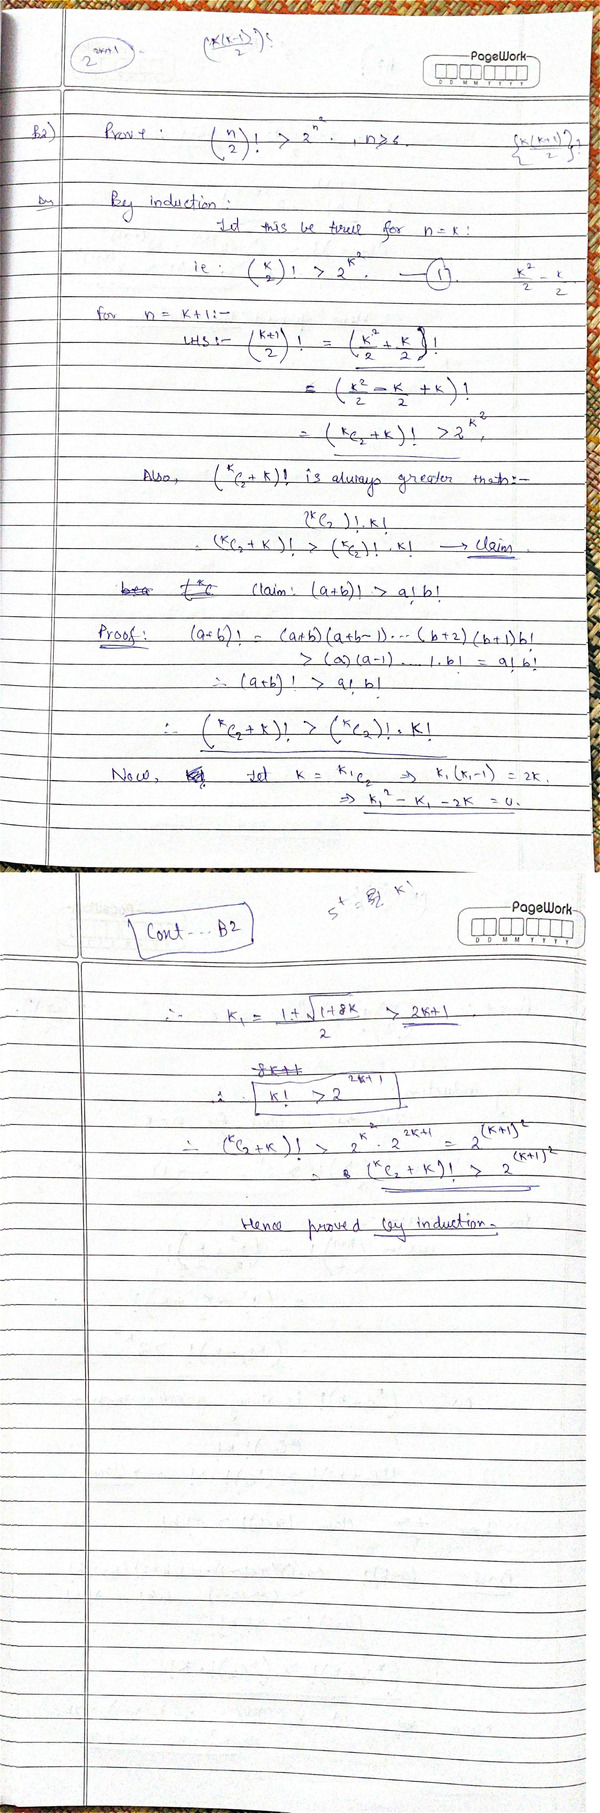 2^{2k+1}
(k(k-1)/2)!
PageWork
D D M M Y Y Y Y
B2) Prove: (n 2)! > 2^{n^2}, n ≥ 6.
{k(k+1)/2}!
By induction:
Let this be true for n = k:
ie: (k 2)! > 2^{k^2}. — (1).
k^2/2 - k/2
For n = k+1:-
LHS:- (k+1 2)! = (k^2/2 + k/2)!
= (k^2/2 - k/2 + k)!
= (^kC_2 + k)! > 2^{k^2}.
Also, (^kC_2 + k)! is always greater than:-
(^kC_2)!.k!
(^kC_2 + k)! > (^kC_2)!.k! → claim.
Claim: (a+b)! > a! b!
Proof: (a+b)! = (a+b)(a+b-1)...(b+2)(b+1)b!
> (a)(a-1)....1.b! = a! b!
∴ (a+b)! > a! b!
∴ (^kC_2 + k)! > (^kC_2)!.k!
Now, Let k = ^{k_1}C_2 ⇒ k_1(k_1-1) = 2k.
⇒ k_1^2 - k_1 - 2k = 0.
PageWork
D D M M Y Y Y Y
Cont... B2
∴ k_1 = 1+√(1+8k)/2 > 2k+1
8k+1
∴ k! > 2^{2k+1}
∴ (^kC_2 + k)! > 2^{k^2}.2^{2k+1} = 2^{(k+1)^2}
(^kC_2 + k)! > 2^{(k+1)^2}
Hence proved by induction.